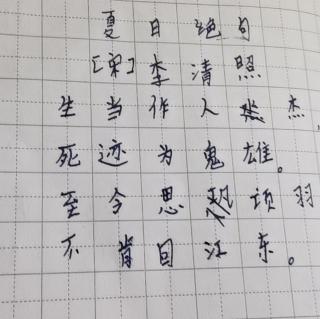 夏日绝句
[宋]李清照
生当作人杰,
死迹为鬼雄。
至今思项羽
不肯回江东。